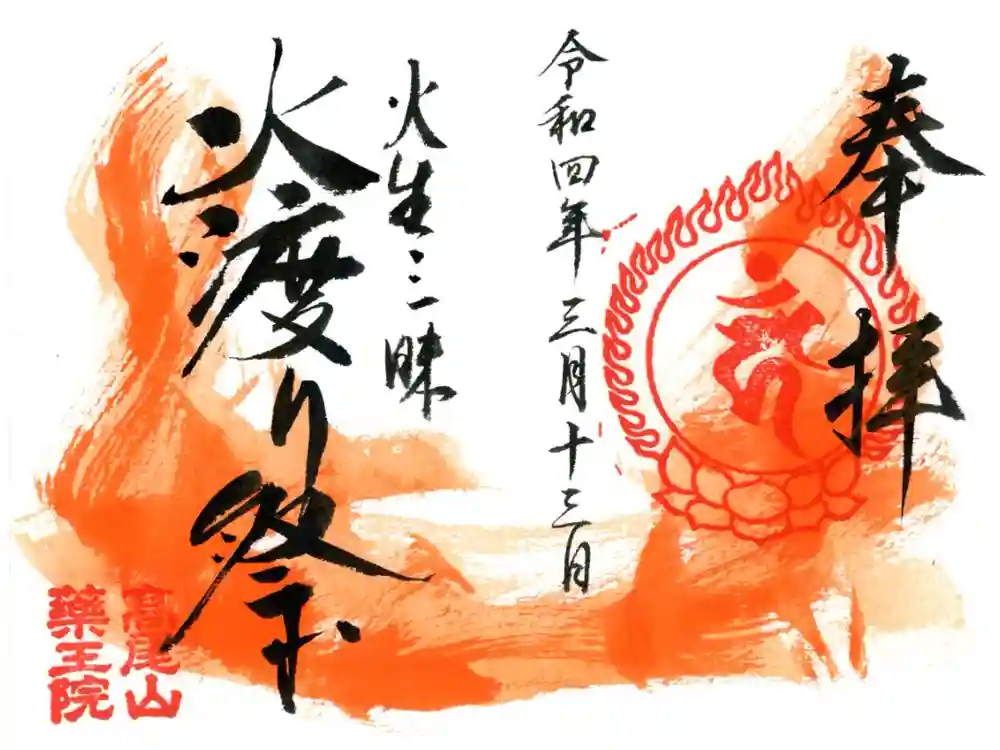 奉拝
令和四年三月十三日
火生三昧
火渡り祭
髙尾山
藥王院